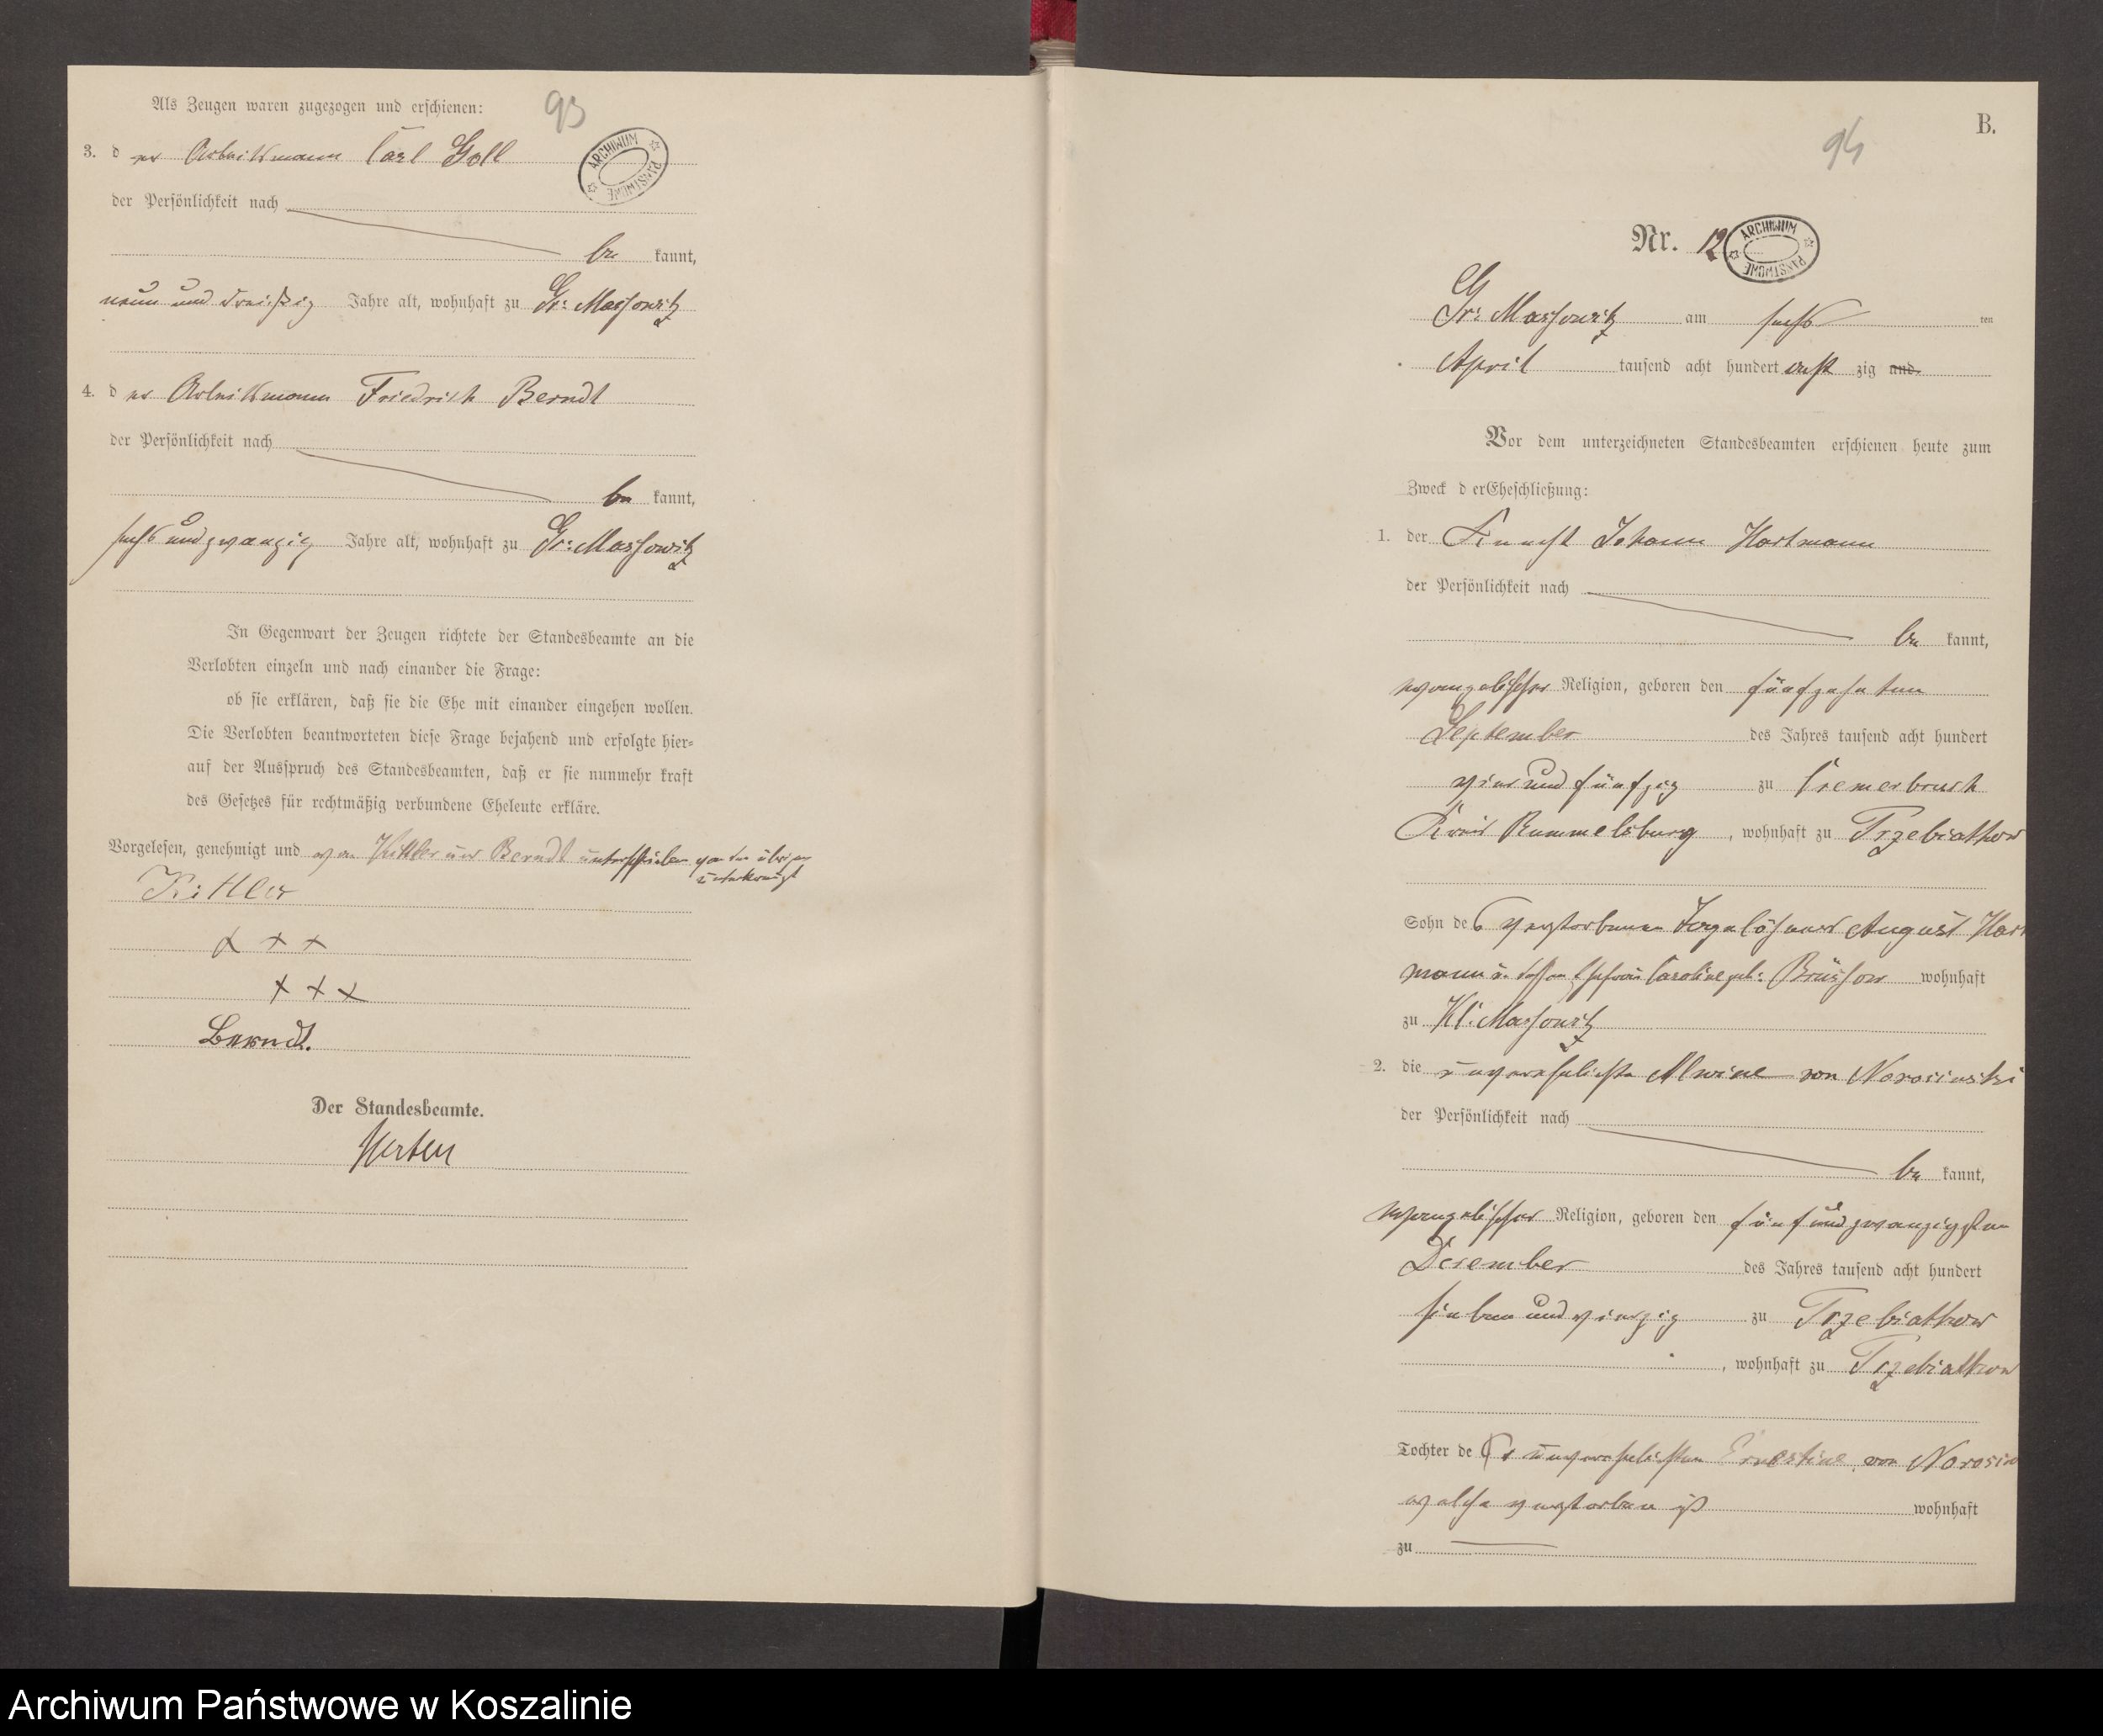 Als Zeugen waren zugezogen und erschienen:
93
3. d er Arbeitsmann Carl Goll
ARCHIWUM PAŃSTWOWE
der Persönlichkeit nach
be kannt,
neun und dreißig Jahre alt, wohnhaft zu Gr: Massowitz
4. d er Arbeitsmann Friedrich Berndt
der Persönlichkeit nach
be kannt,
sechs und zwanzig Jahre alt, wohnhaft zu Gr: Massowitz
In Gegenwart der Zeugen richtete der Standesbeamte an die
Verlobten einzeln und nach einander die Frage:
ob sie erklären, daß sie die Ehe mit einander eingehen wollen.
Die Verlobten beantworteten diese Frage bejahend und erfolgte hier=
auf der Ausspruch des Standesbeamten, daß er sie nunmehr kraft
des Gesetzes für rechtmäßig verbundene Eheleute erkläre.
Vorgelesen, genehmigt und von Kittler und Berndt unterschrieben von den übrigen
unterkreuzt
Kittler
+ + +
+ + +
Berndt.
Der Standesbeamte.
B.
94
Nr. 12
ARCHIWUM PAŃSTWOWE
Gr: Massowitz am sechs ten
April tausend acht hundert acht zig und.
Vor dem unterzeichneten Standesbeamten erschienen heute zum
Zweck d er Eheschließung:
1. der Knecht Johann Hartmann
der Persönlichkeit nach
be kannt,
evangelischer Religion, geboren den fünfzehnten
September des Jahres tausend acht hundert
vier und fünfzig zu Cremerbruch
Kreis Rummelsburg, wohnhaft zu Trzebiatkow
Sohn des verstorbenen Tagelöhners August Hart
mann u. dessen Ehefrau Caroline geb: Brüssow wohnhaft
zu Kl: Massowitz
2. die unverehelichte Alwine von Norosinski
der Persönlichkeit nach
be kannt,
evangelischer Religion, geboren den fünf und zwanzigsten
Dezember des Jahres tausend acht hundert
sieben und vierzig zu Trzebiatkow
, wohnhaft zu Trzebiatkow
Tochter de r unverehelichten Ernestine von Norosin
welche verstorben ist wohnhaft
zu
Archiwum Państwowe w Koszalinie